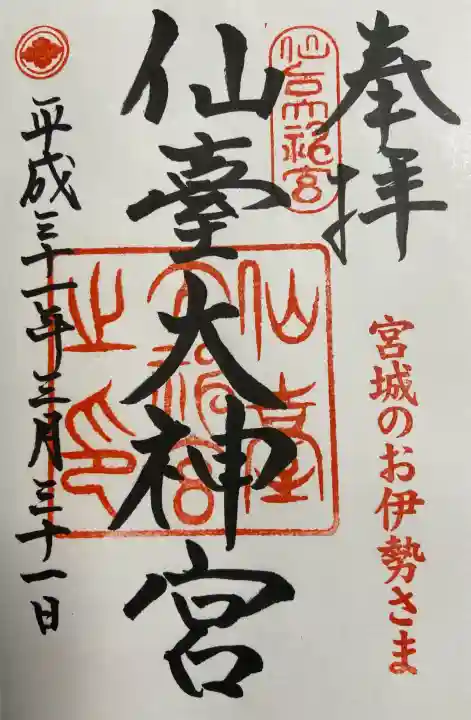 奉拝
宮城のお伊勢さま
仙台大神宮
仙臺大神宮
仙臺
大神宮
之印
平成三十一年三月三十一日